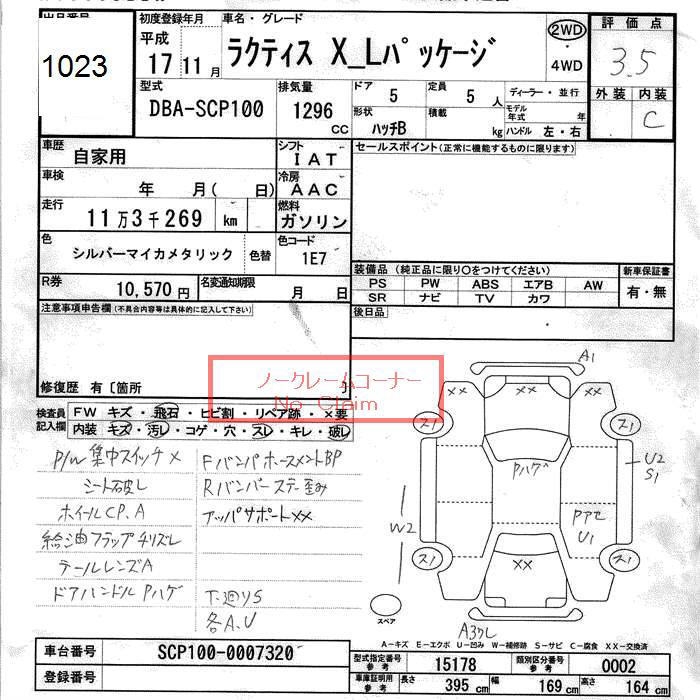 出品番号 初度登録年月 車名・グレード 評価点
1023 平成 17 11月 ラクティス X_Lパッケージ 2WD ・ 4WD 3.5
型式 排気量 ドア 定員 ディーラー・並行 外装 内装
DBA-SCP100 1296 CC 5 5 人 モデル年式 年 C
形状 ハッチB 積載 kg ハンドル 左・右
車歴 自家用 シフト IAT セールスポイント(正常に機能するものに限ります)
車検 年 月( 日) 冷房 AAC
走行 11万3千269 km 燃料 ガソリン
色 シルバーマイカメタリック 色替 色コード 1E7
装備品 (純正品に限り○をつけてください) 新車保証書
R券 10,570 円 名変通知期限 月 日 PS PW ABS エアB AW 有・無
SR ナビ TV カワ
注意事項申告欄(不具合内容等は具体的に記入して下さい) 後日品
修復歴 有〔箇所
ノークレームコーナー
No Claim
検査員記入欄 FW キズ・飛石・ヒビ割・リペア跡・×要
内装 キズ・汚レ・コゲ・穴・スレ・キレ・破レ
P/W集中スイッチ× Fバンパホースメント BP
シート破レ Rバンパーステー歪み
ホイールCP.A アッパサポート××
給油フラップチリズレ
テールレンズA
ドアハンドルPハゲ 下廻りS
各A.U
A1
×× ××
ス1 ス1
Pハゲ U2
S1
W2 Pアセ
U1
ス1 ×× ス1
スペア
A3ワレ
A-キズ E-エクボ U-凹み W-補修跡 S-サビ C-腐食 XX-交換済
車台番号 SCP100-0007320
登録番号
型式指定番号 参考 15178 類別区分番号 参考 0002
車庫証明用 参考 長さ 395 cm 幅 169 cm 高さ 164 cm